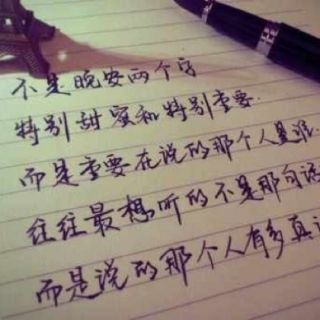 不是晚安两个字
特别甜蜜和特别重要.
而是重要在说的那个人是谁.
往往最想听的不是那句话
而是说的那个人有多真